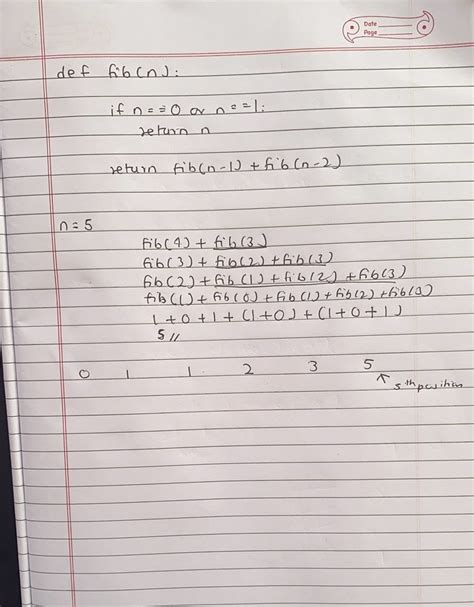 Date
Page
def fib(n):
if n == 0 or n == 1:
return n
return fib(n-1) + fib(n-2)
n = 5
fib(4) + fib(3)
fib(3) + fib(2) + fib(3)
fib(2) + fib(1) + fib(2) + fib(3)
fib(1) + fib(0) + fib(1) + fib(2) + fib(3)
1 + 0 + 1 + (1+0) + (1+0+1)
5 //
0 1 1 2 3 5
↑ 5th position